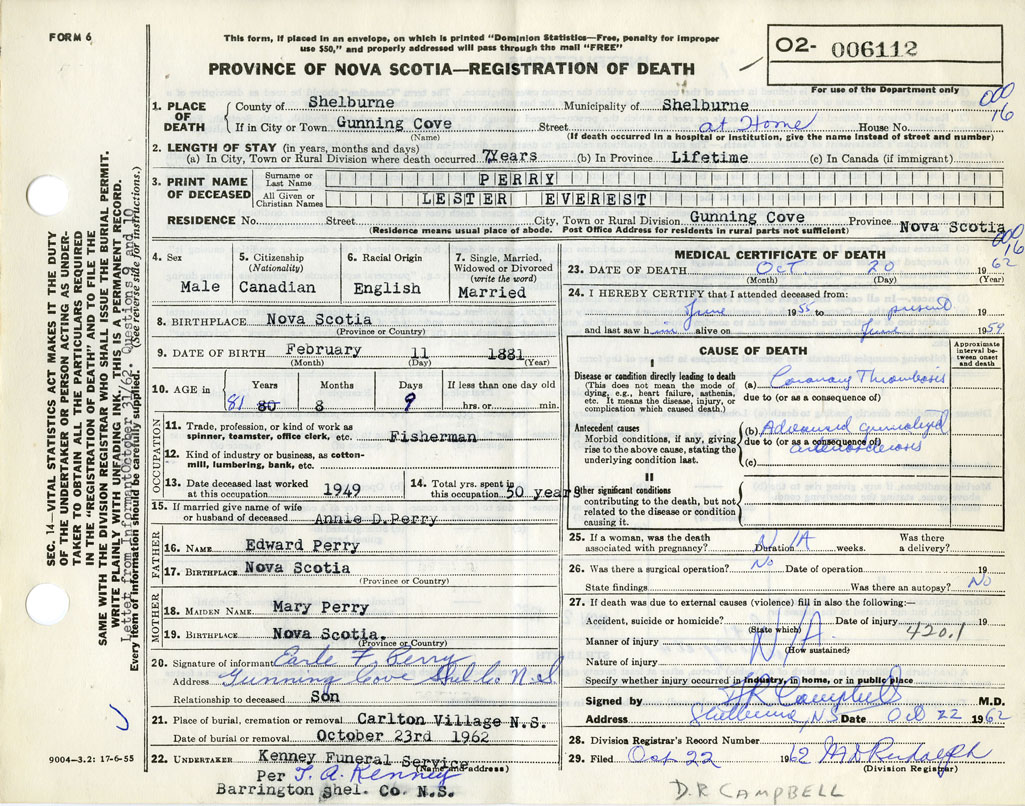 FORM 6
This form, if placed in an envelope, on which is printed "Dominion Statistics—Free, penalty for improper
use $50," and properly addressed will pass through the mail "FREE"
PROVINCE OF NOVA SCOTIA—REGISTRATION OF DEATH
O2- 006112
For use of the Department only
000
16
1. PLACE OF DEATH
County of Shelburne Municipality of Shelburne
If in City or Town Gunning Cove Street at Home House No.
(Name) (If death occurred in a hospital or institution, give the name instead of street and number)
2. LENGTH OF STAY (in years, months and days)
(a) In City, Town or Rural Division where death occurred 7Years (b) In Province Lifetime (c) In Canada (if immigrant)
3. PRINT NAME OF DECEASED
Surname or Last Name PERRY
All Given or Christian Names LESTER EVEREST
RESIDENCE No. Street City, Town or Rural Division Gunning Cove Province Nova Scotia
(Residence means usual place of abode. Post Office Address for residents in rural parts not sufficient)
000
16
4. Sex
Male
5. Citizenship
(Nationality)
Canadian
6. Racial Origin
English
7. Single, Married,
Widowed or Divorced
(write the word)
Married
8. BIRTHPLACE Nova Scotia
(Province or Country)
9. DATE OF BIRTH February 11 1881
(Month) (Day) (Year)
10. AGE in Years Months Days If less than one day old
81 80 8 9 hrs. or min.
OCCUPATION
11. Trade, profession, or kind of work as
spinner, teamster, office clerk, etc. Fisherman
12. Kind of industry or business, as cotton-
mill, lumbering, bank, etc.
13. Date deceased last worked
at this occupation 1949
14. Total yrs. spent in
this occupation 50 years
15. If married give name of wife
or husband of deceased Annie D.Perry
FATHER
16. NAME Edward Perry
17. BIRTHPLACE Nova Scotia
(Province or Country)
MOTHER
18. MAIDEN NAME. Mary Perry
19. BIRTHPLACE Nova Scotia.
(Province or Country)
20. Signature of informant Earle F. Perry
Address Gunning Cove Shel Co N.S
Relationship to deceased Son
21. Place of burial, cremation or removal Carlton Village N.S.
Date of burial or removal October 23rd 1962
22. UNDERTAKER Kenney Funeral Service
(Name and address)
Per T. A. Kenney
Barrington Shel. Co N.S.
MEDICAL CERTIFICATE OF DEATH
23. DATE OF DEATH Oct 20 19 62
(Month) (Day) (Year)
24. I HEREBY CERTIFY that I attended deceased from:
June 1955 to present 19
and last saw him alive on June 1959
CAUSE OF DEATH
Approximate
interval be-
tween onset
and death
I
Disease or condition directly leading to death
(This does not mean the mode of
dying, e.g., heart failure, asthenia,
etc. It means the disease, injury, or
complication which caused death.)
(a) Coronary Thrombosis
due to (or as a consequence of)
Antecedent causes
Morbid conditions, if any, giving
rise to the above cause, stating the
underlying condition last.
(b) Advanced generalized
due to (or as a consequence of)
arteriosclerosis
(c)
II
Other significant conditions
contributing to the death, but not
related to the disease or condition
causing it.
25. If a woman, was the death
associated with pregnancy? N/A Duration weeks. Was there
a delivery?
26. Was there a surgical operation? No Date of operation 19
State findings Was there an autopsy? No
27. If death was due to external causes (violence) fill in also the following:—
Accident, suicide or homicide? Date of injury 19
(State which) 420.1
Manner of injury N/A
(How sustained)
Nature of injury
Specify whether injury occurred in industry, in home, or in public place
Signed by D R Campbell M.D.
Address Shelburne, NS Date Oct 22 1962
28. Division Registrar's Record Number
29. Filed Oct 22 1962
(Division Registrar)
D.R CAMPBELL
SEC. 14—VITAL STATISTICS ACT MAKES IT THE DUTY
OF THE UNDERTAKER OR PERSON ACTING AS UNDER-
TAKER TO OBTAIN ALL THE PARTICULARS REQUIRED
IN THE "REGISTRATION OF DEATH" AND TO FILE THE
SAME WITH THE DIVISION REGISTRAR WHO SHALL ISSUE THE BURIAL PERMIT.
WRITE PLAINLY WITH UNFADING INK. THIS IS A PERMANENT RECORD.
Letter from Informant October 31/62. Questions 9 and 10
Every item of information should be carefully supplied. (See reverse side for instructions.)
9004-3.2: 17-6-55